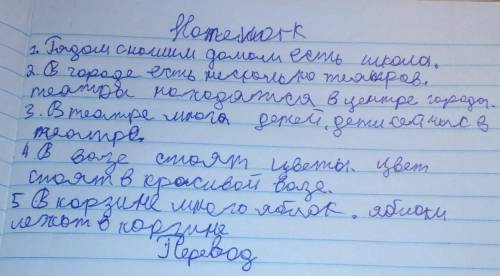 Homework
1. Рядом с нашим домом есть школа.
2. В городе есть несколько театров.
театры находятся в центре города.
3. В театре много детей. дети сейчас в
театре.
4. В вазе стоят цветы. цвет
стоят в красивой вазе.
5 В корзине много яблок. яблоки
лежат в корзине
Перевод